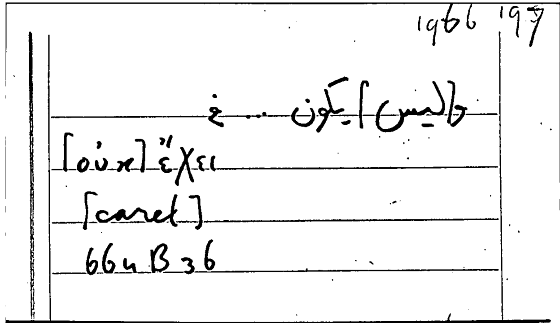 1966 197
[وليس] يكون ... غ
[οὐκ] ἔχει
[caret]
664 B 36